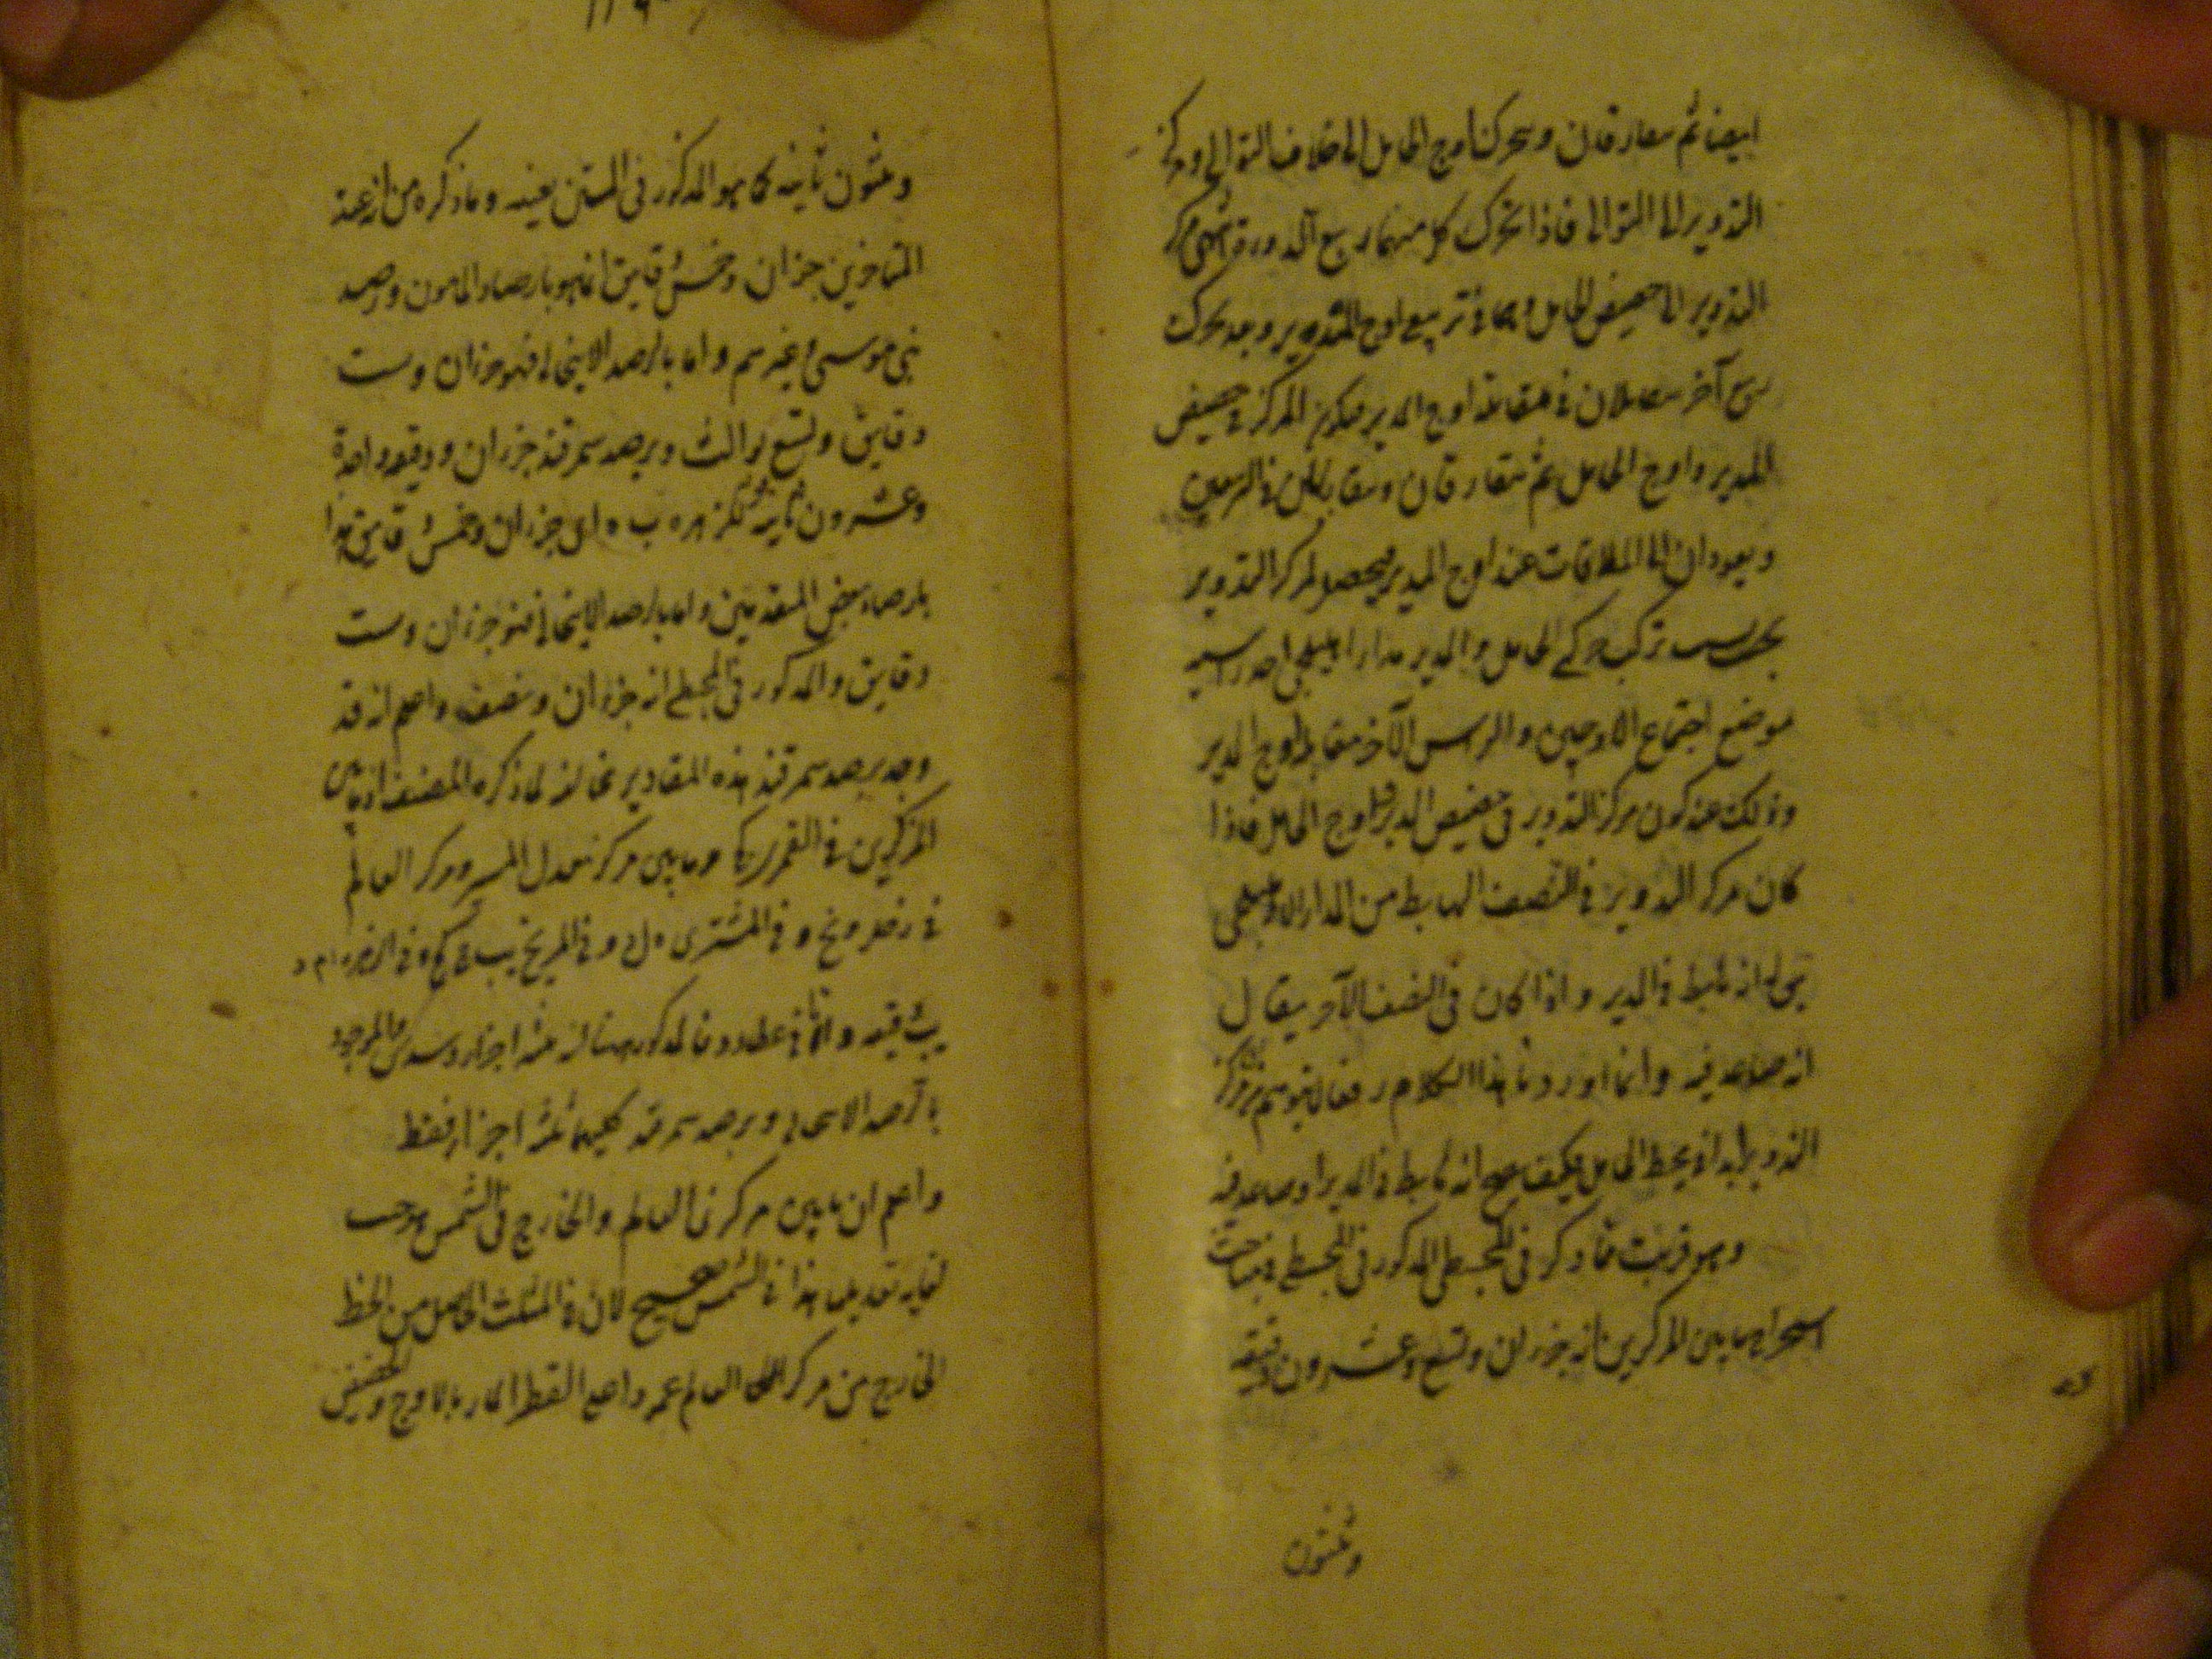 ايضا ثم يتفارقان ويتحرك اوج الحامل الى خلاف التوالى ومركز
التدوير الى التوالى فاذا تحرك كل منهما ربع الدور ينتهى مركز
التدوير الى حضيض الحامل وهما فى تربيع اوج المدير وبعد تحرك
ربع آخر يتقابلان فى مقابلة اوج المدير فيكون المركز فى حضيض
المدير واوج الحامل ثم يتفارقان ويتقابلان فى التربيعين
ويعودان الى الملاقات عند اوج المدير فيحصل لمركز التدوير
بحسب تركب حركتى الحامل والمدير مدار اهليلجى احد راسيه
موضع اجتماع الاوجين والراس الآخر مقابل اوج المدير
وذلك عند كون مركز التدوير فى حضيض المدير واوج الحامل فاذا
كان مركز التدوير فى النصف الهابط من المدار الاهليلجى
يقال انه هابط فى المدير واذا كان فى النصف الآخر يقال
انه صاعد فيه وانما اوردنا هذا الكلام رفعا لتوهم ان مركز
التدوير ابدا فى محيط الحامل فكيف يصح انه هابط فى المدير او صاعد فيه
وهو قريب مما ذكر فى المجسطى المذكور فى المجسطى فى مباحث
استخراج ما بين المركزين انه جزءان وتسع وعشرون دقيقة
وثلثون
وثلثون ثانية كما هو المذكور فى المتن بعينه وما ذكره من انه عند
المتاخرين جزءان وخمس دقايق انما هو بارصاد المامون ورصد
بنى موسى وغيرهم واما بالرصد الايلخانى فهو جزءان وست
دقايق وتسع ثوالث وبرصد سمرقند جزءان ودقيقة واحدة
وعشرون ثانية للزهرة ب ه اى جزءان وخمس دقايق هذا
بارصاد بعض المتقدمين واما بالرصد الايلخانى فهو جزءان وست
دقايق والمذكور فى المجسطى انه جزءان ونصف واعلم انه قد
وجد برصد سمرقند هذه المقادير مخالفة لما ذكره المصنف اذ ما بين
المركزين فى القمر وما بين مركز معدل المسير ومركز العالم
فى زحل و نح و فى المشترى ه ل و فى المريخ يب و فى الزهرة
دقيقة واما فى عطارد فالمذكور ههنا انه ثلثة اجزاء وسدس والموجود
بالرصد الايلخانى وبرصد سمرقند كليهما ثلثة اجزاء فقط
واعلم ان ما بين مركزى العالم والخارج فى الشمس هو جيب
لغاية تعديلها هذا فى الشمس صحيح لان فى المثلث الحاصل من الخط
الخارج من مركز العالم عمودا على القطر المار بالاوج والحضيض